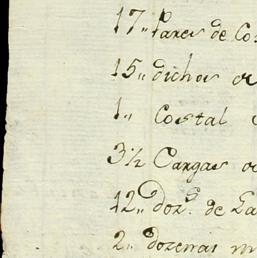 17,, Pares de Co
15,, dichos
1,, Costal
3½ Cargas
12,, Doz.s de La
2,, dozenas